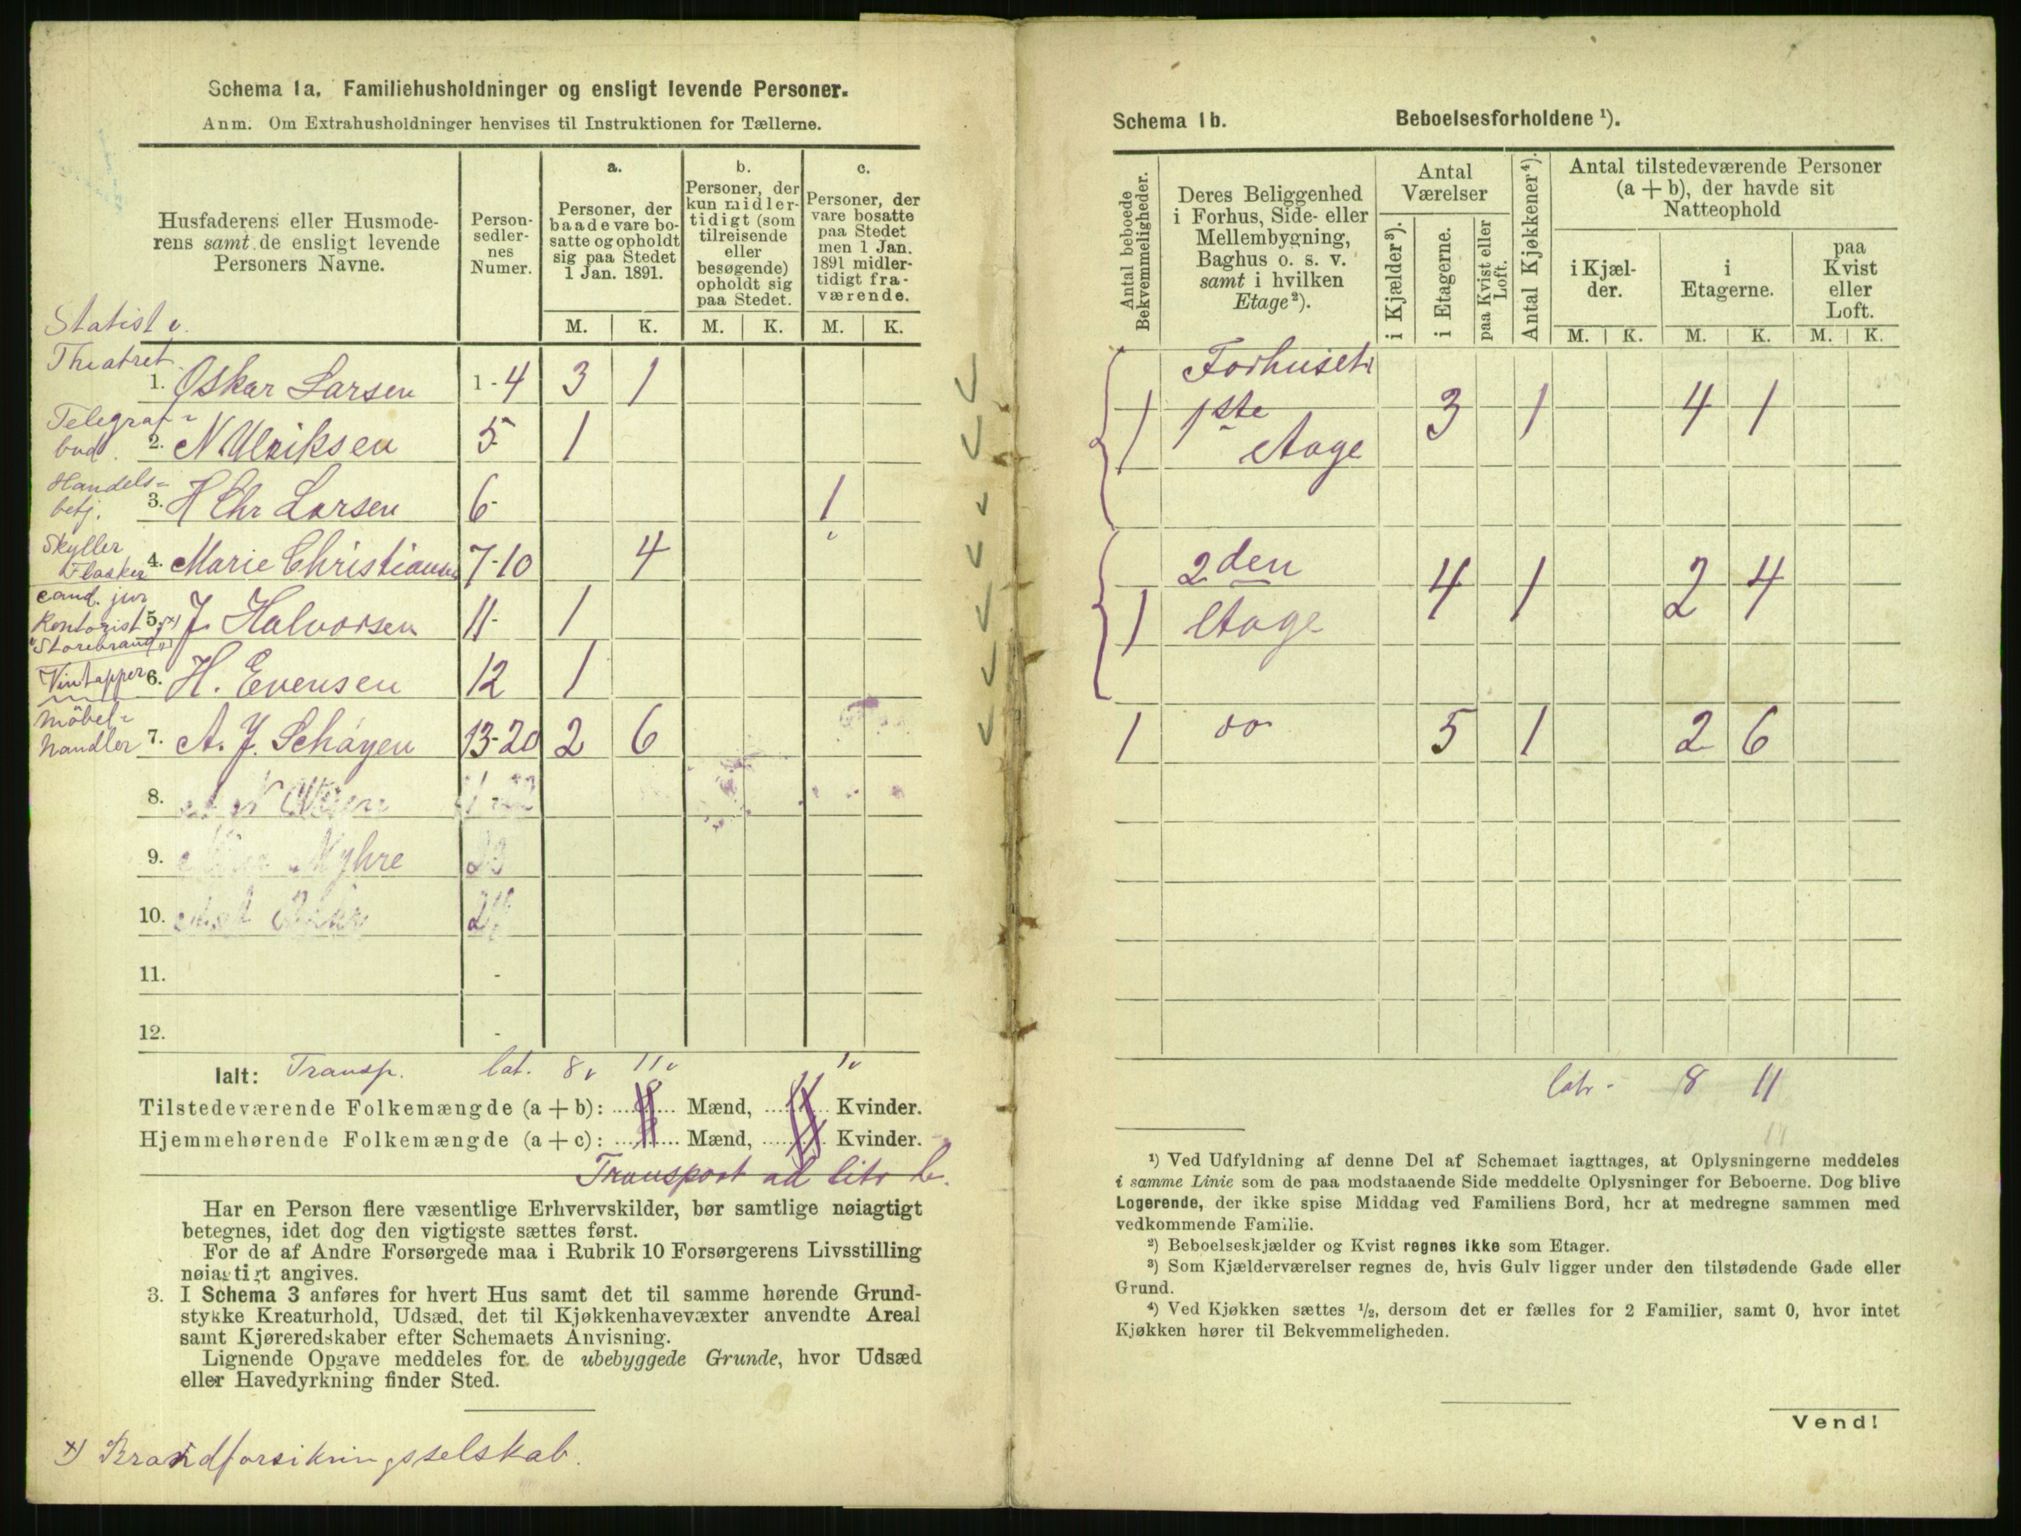 Schema 1a. Familiehusholdninger og ensligt levende Personer.
Anm. Om Extrahusholdninger henvises til Instruktionen for Tællerne.
Husfaderens eller Husmoderens samt de ensligt levende Personers Navne.
Person-sedlernes Numer.
a. Personer, der baade vare bosatte og opholdt sig paa Stedet 1 Jan. 1891.
b. Personer, der kun midlertidigt (som tilreisende eller besøgende) opholdt sig paa Stedet.
c. Personer, der vare bosatte paa Stedet men 1 Jan. 1891 midlertidigt fraværende.
M. K. M. K. M. K.
Statist v. Theatret 1. Oskar Larsen 1-4 3 1
Telegrafbud. 2. N Ulriksen 5 1
Handelsbetj. 3. H Chr Larsen 6- 1
Skyller Flasker 4. Marie Christiansen 7-10 4
cand. jur Kontorist i x) "Storebrand" 5. J. Halvorsen 11- 1
Vintapper 6. H. Evensen 12 1
Möbelhandler 7. A. J. Schøyen 13-20 2 6
8.
9. Myhre 23
10. 24
11. -
12. -
Ialt: Transp. lat. 8 11 1
Tilstedeværende Folkemængde (a + b): 8 Mænd, 11 Kvinder.
Hjemmehørende Folkemængde (a + c): Mænd, Kvinder.
Transport ad litr b.
Har en Person flere væsentlige Erhvervskilder, bør samtlige nøiagtigt
betegnes, idet dog den vigtigste sættes først.
For de af Andre Forsørgede maa i Rubrik 10 Forsørgerens Livsstilling
nøiagtigt angives.
3. I Schema 3 anføres for hvert Hus samt det til samme hørende Grund-
stykke Kreaturhold, Udsæd, det til Kjøkkenhavevæxter anvendte Areal
samt Kjøreredskaber efter Schemaets Anvisning.
Lignende Opgave meddeles for de ubebyggede Grunde, hvor Udsæd
eller Havedyrkning finder Sted.
x) Brandforsikringsselskab.
Schema 1b. Beboelsesforholdene ¹).
Antal beboede Bekvemmeligheder.
Deres Beliggenhed i Forhus, Side- eller Mellembygning, Baghus o. s. v. samt i hvilken Etage ²).
Antal Værelser
i Kjælder ³).
i Etagerne.
paa Kvist eller Loft.
Antal Kjøkkener ⁴).
Antal tilstedeværende Personer (a + b), der havde sit Natteophold
i Kjælder.
i Etagerne.
paa Kvist eller Loft.
M. K. M. K. M. K.
Forhuset
1 1ste Etage 3 1 4 1
2den
1 Etage 4 1 2 4
1 do 5 1 2 6
latr - 8 11
¹) Ved Udfyldning af denne Del af Schemaet iagttages, at Oplysningerne meddeles
i samme Linie som de paa modstaaende Side meddelte Oplysninger for Beboerne. Dog blive
Logerende, der ikke spise Middag ved Familiens Bord, her at medregne sammen med
vedkommende Familie.
²) Beboelseskjælder og Kvist regnes ikke som Etager.
³) Som Kjælderværelser regnes de, hvis Gulv ligger under den tilstødende Gade eller
Grund.
⁴) Ved Kjøkken sættes ¹/₂, dersom det er fælles for 2 Familier, samt 0, hvor intet
Kjøkken hører til Bekvemmeligheden.
Vend!